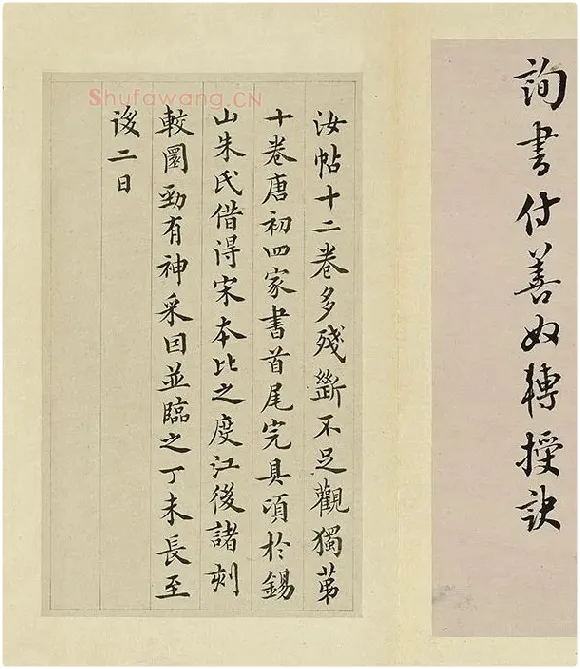 詢書付善奴轉授訣
汝帖十二卷多殘斷不足觀獨苐
十卷唐初四家書首尾完具頃於錫
山朱氏借得宋本比之度江後諸刻
較圓勁有神采因並臨之丁未長至
後二日
Shufawang.CN